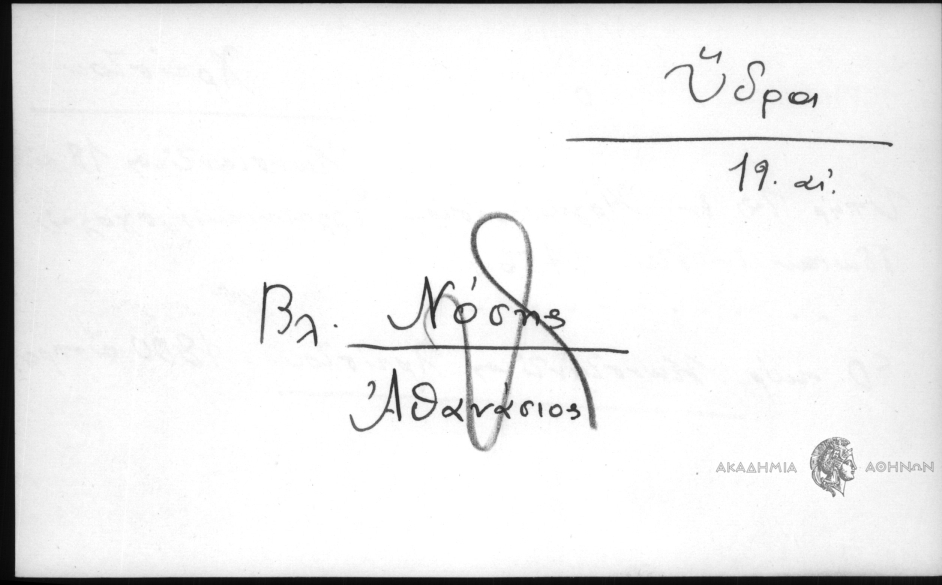 Ὕδρα
19. αἰ.
Βλ. Νόσης
Ἀθανάσιος
ΑΚΑΔΗΜΙΑ ΑΘΗΝΩΝ